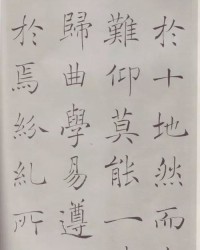 於十地然而
難仰莫能一
歸曲學易遵
於焉紛糺所